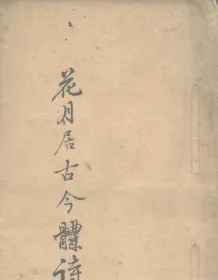 花月居古今體詩